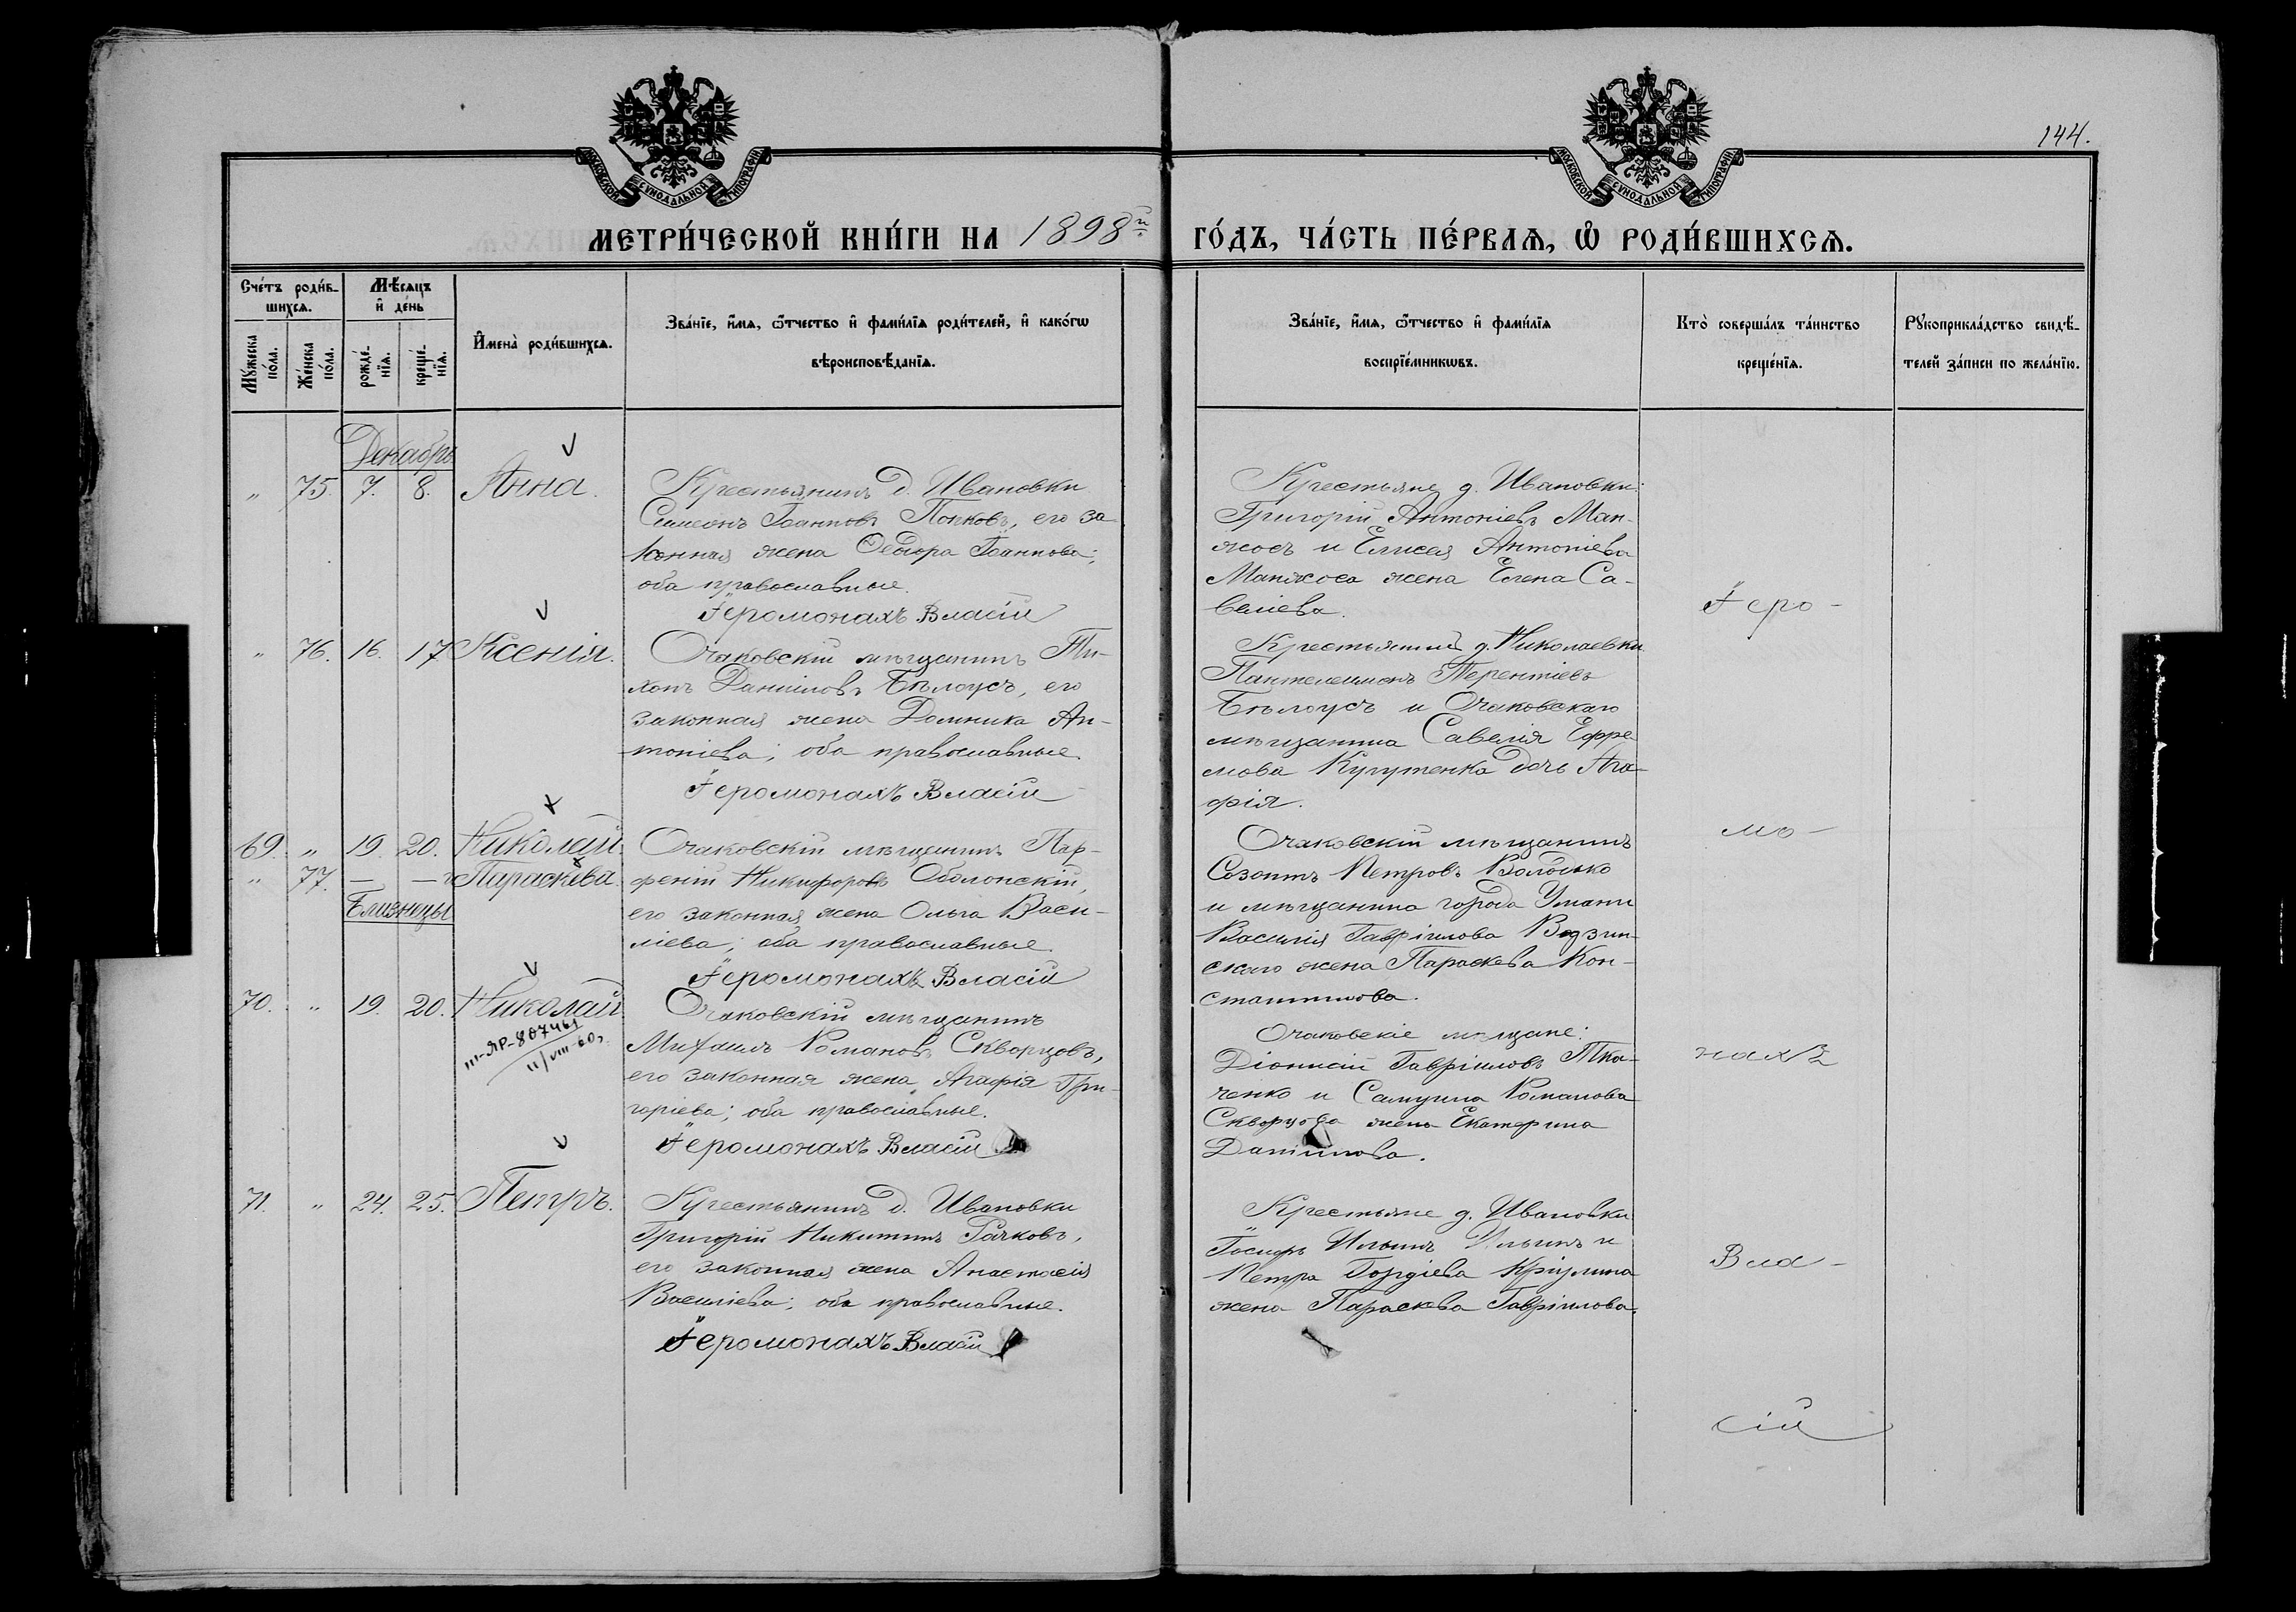 144.
МОСКОВСКОЙ СѴНОДАЛЬНОЙ ТИПОГРАФІИ
МОСКОВСКОЙ СѴНОДАЛЬНОЙ ТИПОГРАФІИ
МЕТРИ́ЧЕСКОЙ КНИ́ГИ НА 1898й ГО́ДЪ, ЧА́СТЬ ПЕ́РВАѦ, Ѡ РОДИ́ВШИХСѦ.
Сче́тъ роди́в-
шихсѧ.
Мꙋ́жеска по́ла.
Же́нска по́ла.
Мѣ́сѧцъ
и҆ де́нь
рожде́-
нїѧ.
креще́-
нїѧ.
И҆мена̀ роди́вшихсѧ.
Зва́нїе, и҆́мѧ, ѻ҆́тчество и҆ фами́лїѧ роди́телей, и҆ како́гѡ
вѣроисповѣ́данїѧ.
Зва́нїе, и҆́мѧ, ѻ҆́тчество и҆ фами́лїѧ
воспрїе́мникѡвъ.
Кто̀ соверша́лъ та́инство
креще́нїѧ.
Рꙋкоприкла́дство свидѣ́-
телей за́писи по жела́нїю.
Декабрь
„ 75. 7. 8. Анна.
Крестьянинъ д. Ивановки
Симеонъ Іоанновъ Попковъ, его за
конная жена Ѳеодора Іоаннова;
оба православные.
Іеромонахъ Власій
Крестьяне д. Ивановки:
Григорій Антоніевъ Ман-
жосъ и Елисея Антоніева
Манжоса жена Елена Са-
веліева.
„ 76. 16. 17 Ксенія.
Очаковскій мѣщанинъ Ти-
хонъ Даниіловъ Бѣлоусъ, его
законная жена Домника Ан-
тоніева; оба православные.
Іеромонахъ Власій
Крестьянинъ д. Николаевки
Пантелеимонъ Терентіевъ
Бѣлоусъ и Очаковскаго
мѣщанина Савелія Ефре
мова дочь Ага-
фія.
69. „ 19. 20. Николай.
„ 77. — — Параскева.
Близнецы
Очаковскій мѣщанинъ Пар-
феній Никифоровъ Оболонскій,
его законная жена Ольга Васи-
ліева; оба православные.
Іеромонахъ Власій
Очаковскій мѣщанинъ
Созонтъ Петровъ Володько
и мѣщанина города Умани
Василія Гавріилова
скаго жена Параскева Кон-
стантинова.
70. „ 19. 20. Николай
III-ЯР-807461
11/VIII-60г.
Очаковскій мѣщанинъ
Михаилъ Романовъ Скворцовъ,
его законная жена Агафія Гри-
горіева; оба православные.
Іеромонахъ Власій
Очаковскіе мѣщане:
Діонисій Гавріиловъ Тка-
ченко и Самуила Романова
Скворцова жена Екатерина
Даніилова.
71. „ 24. 25. Петръ.
Крестьянинъ д. Ивановки
Григорій Никитинъ Рачковъ,
его законная жена Анастасія
Василіева; оба православные.
Іеромонахъ Власій
Крестьяне д. Ивановки
Іосифъ Ильинъ Ильинъ и
Петра Гордіева
жена Параскева Гавріилова.
Іеро-
мо-
нахъ
Вла-
сій